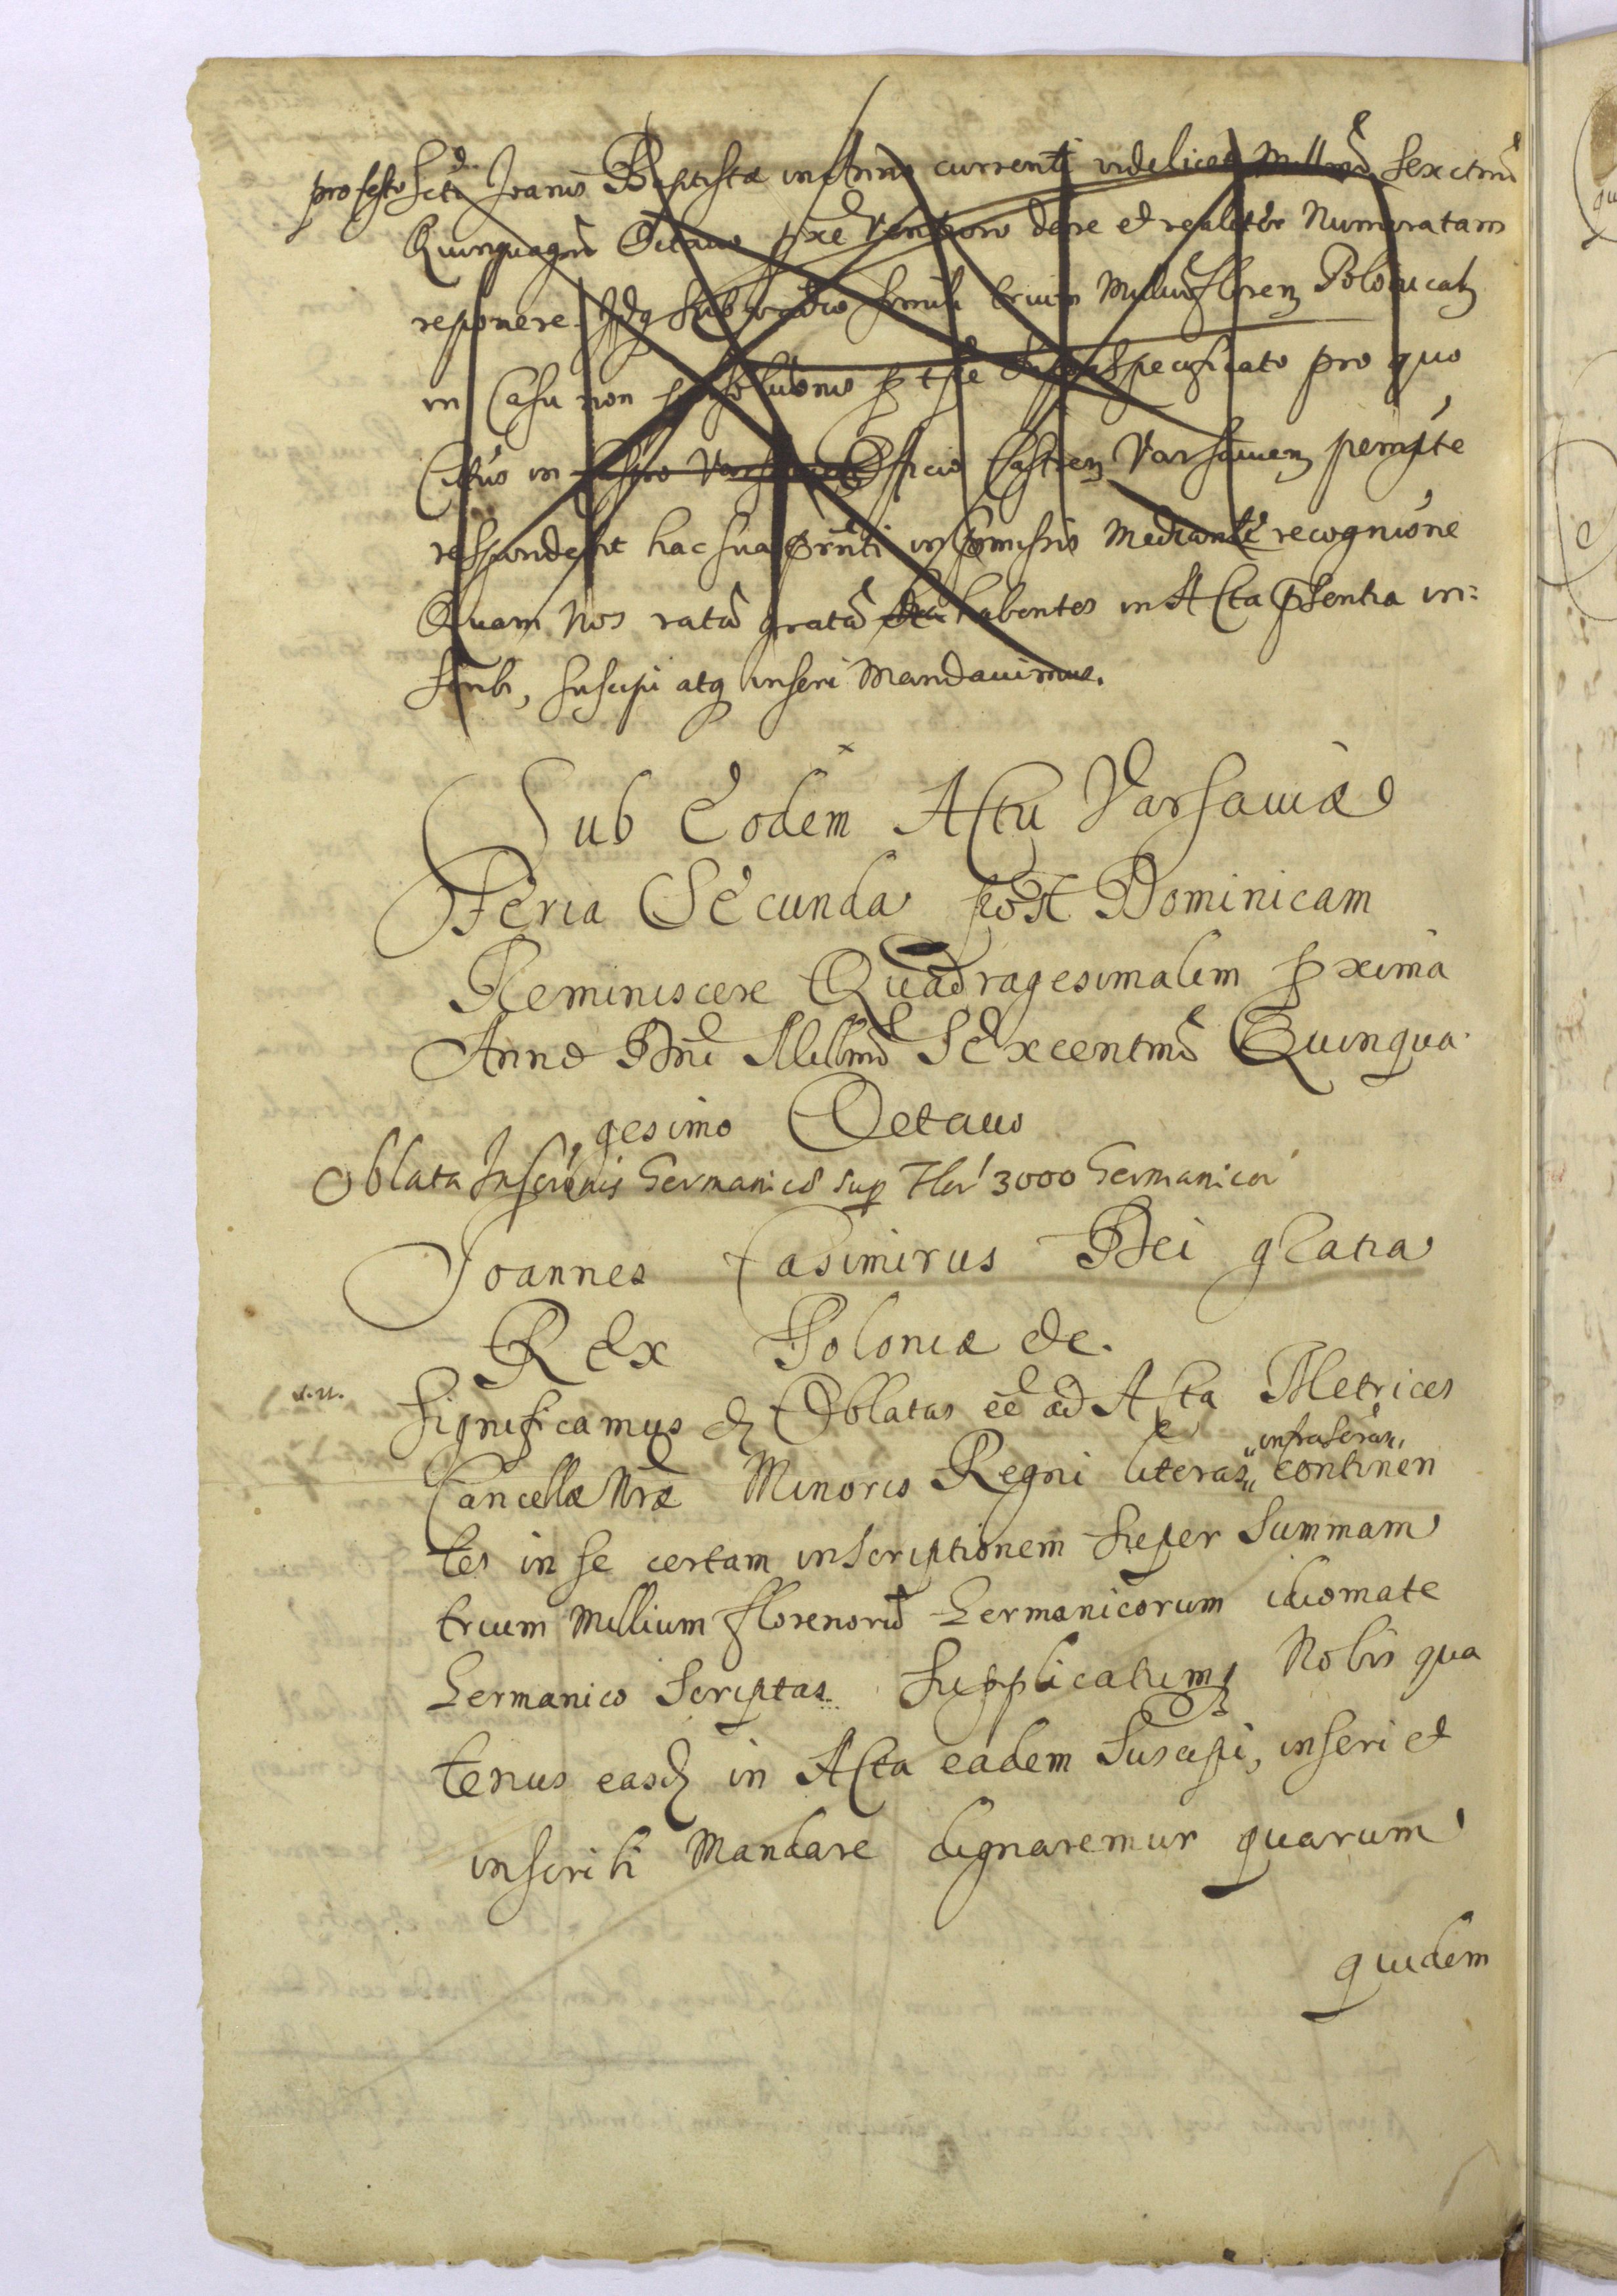 pro festo Scti Joanis Baptistæ in Anno currenti videlicet Millmo Sexctmo
Quinquagmo Octauo pxe venturo dare et realiter Numeratam
reponere. Idq sub vadio simili trium Milliu floren Polonicalz
in Casu non solutionis p tpe supraspecificato pro quo
Citus in Officio Castren Varsauien perempte
respondebit hac sua prnti in pmissis Mediante recognióne
Quam Nos ratã gratã habentes in Acta psentia in:
scribi, suscipi atq inseri Mandauimus.
Sub Eodem Actu Varsauiæ
Feria Secunda post Dominicam
Reminiscere Quadragesimalem pxima
Anno Dni Millmo Sexcentmo Quinqua
gesimo Octauo
Oblata Inscriónis Germanicæ sup Flor 3000 Germanicor
Joannes Casimirus Dei gratia
Rex Poloniæ etc.
Significamus etc Oblatas eê ad Acta Metrices
Cancellæ Nræ Minoris Regni literas infrascrãs continen
tes in se certam inscriptionem super Summam
trium Millium florenorũ Germanicorum idiomate
Germanico Scriptas. Supplicatumq Nobis qua
tenus easd in Acta eadem Suscipi, inseri et
inscribi Mandare dignaremur quarum
quidem